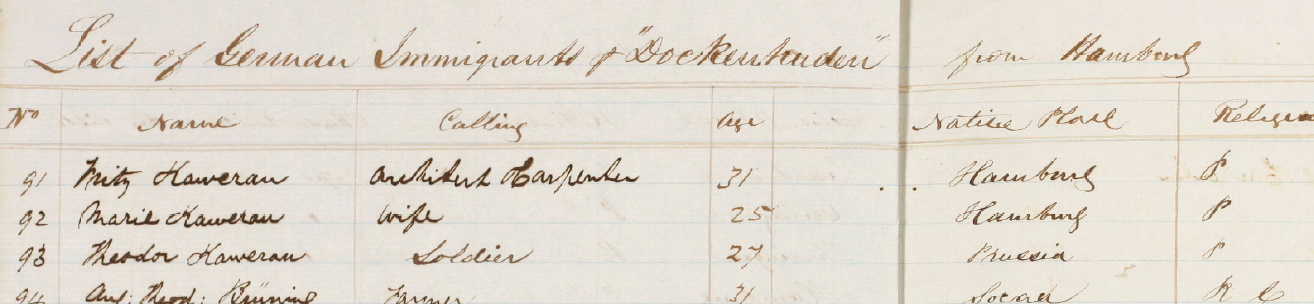 List of German Immigrants p "Dockenhuden" from Hamburg
No Name Calling Age Native Place Religion
91 Fritz Kawerau Architect Carpenter 31 Hamburg P
92 Marie Kawerau Wife 25 Hamburg P
93 Theodor Kawerau Soldier 27 Prussia P
94 Aug: Theod: Brüning Farmer 31 R C